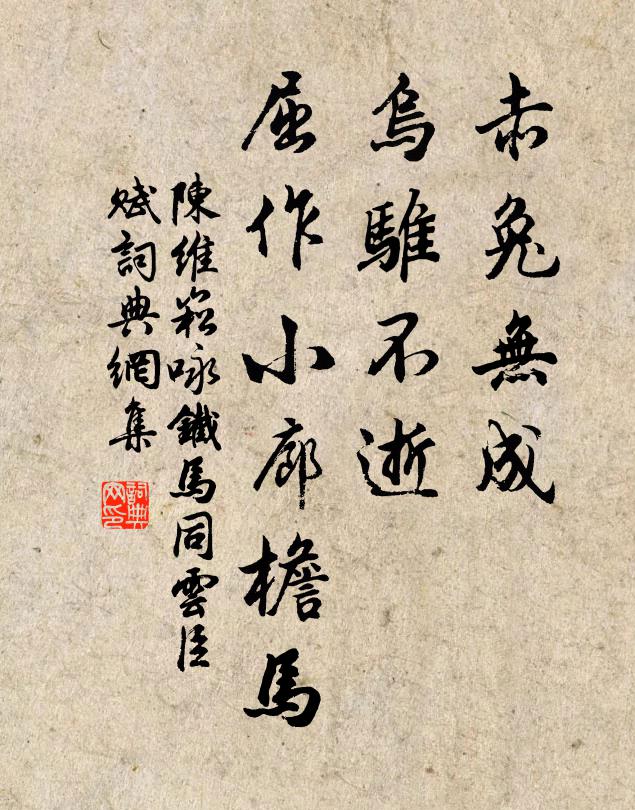 赤兔無成
烏騅不逝
屈作小廊檐馬
陳維崧咏鐵馬同雲臣
賦詞典網集
詞典
网印